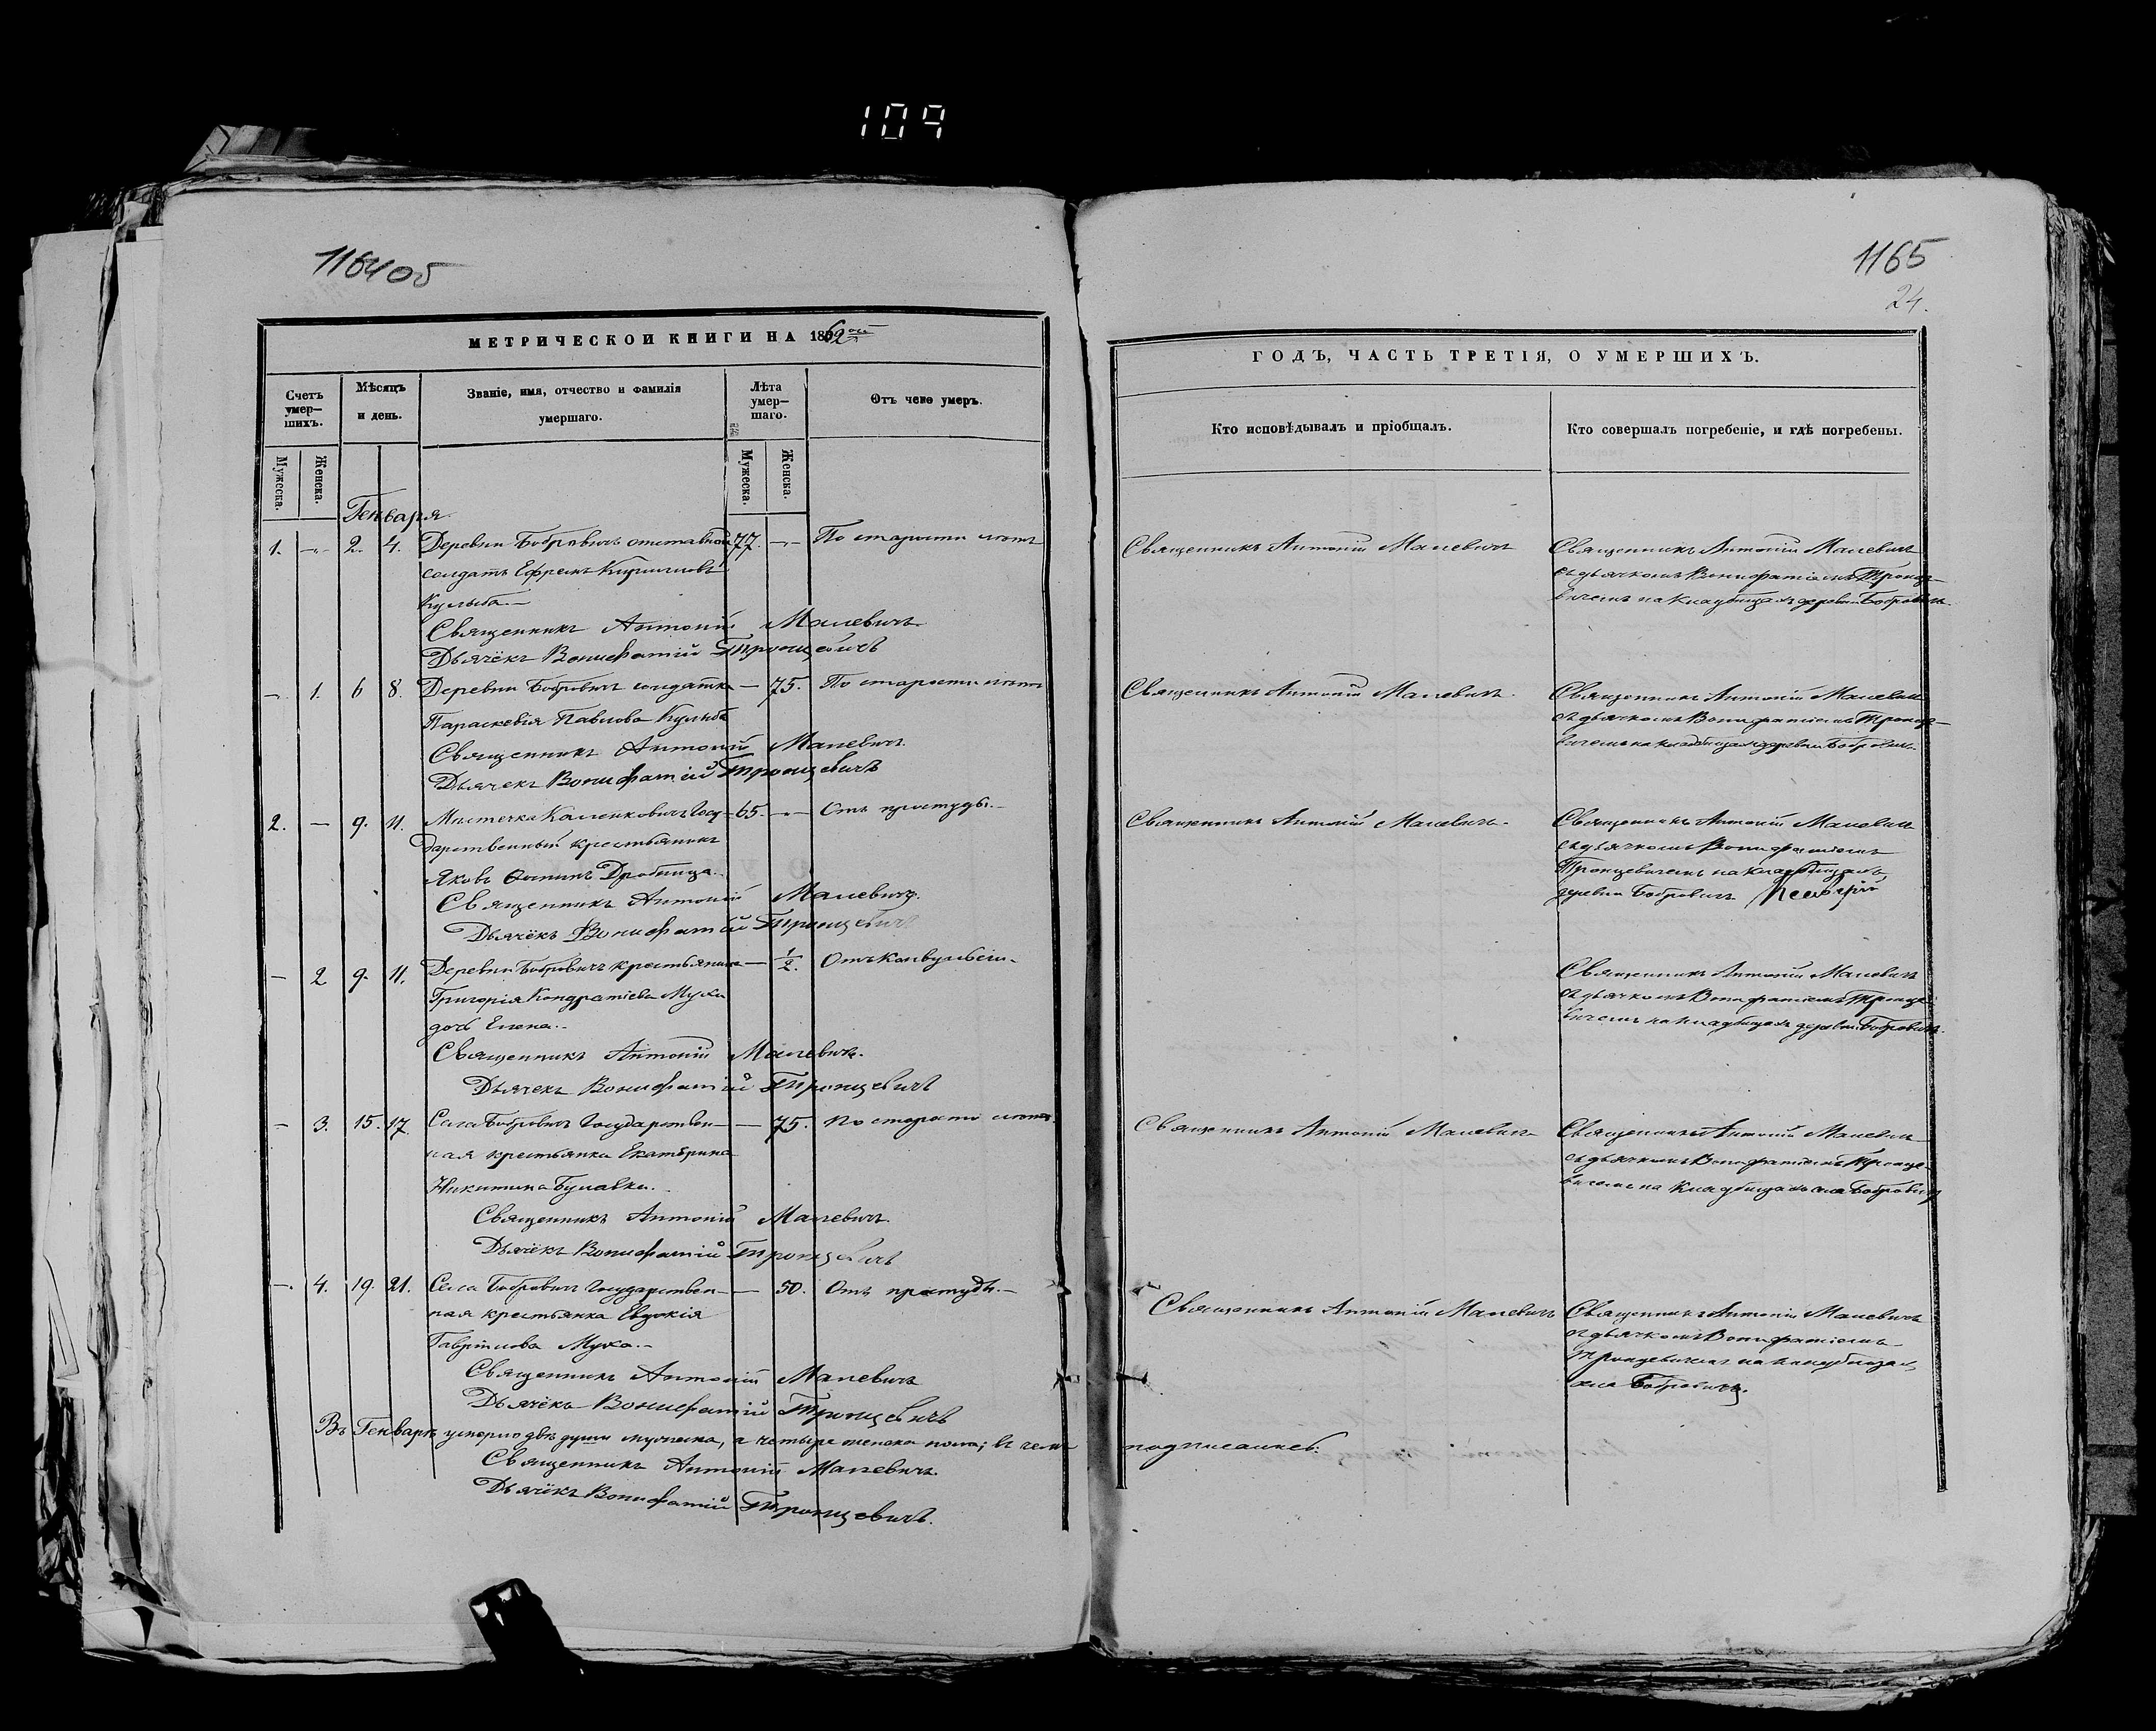 109
1164об
1165
24.
МЕТРИЧЕСКОЙ КНИГИ НА 1862ой
Счетъ умер-
шихъ.
Мѣсяцъ
и день.
Званіе, имя, отчество и фамилія
умершаго.
Лѣта
умер-
шаго.
Отъ чего умеръ.
Мужеска.
Женска.
Мужеска.
Женска.
Генваря
1. -„- 2. 4. Деревни Бобровичъ отставной 77. -„- По старости лѣтъ
солдатъ Ефремъ Кирилловъ
Кульба.-
Священникъ Антоній Малевичъ.
Дьячёкъ Вонифатій Тронцевичъ
- 1. 6 8. Деревни Бобровичъ солдатка - 75. По старости лѣтъ
Параскевія Павлова Кульба
Священникъ Антоній Малевичъ.
Дьячекъ Вонифатій Тронцевичъ
2. - 9. 11. Мѣстечка Каленковичъ Госу- 65. -„- Отъ простуды.-
дарственный крестьянинъ
Яковъ Дробница.
Священникъ Антоній Малевичъ.
Дьячёкъ Вонифатій Тронцевичъ
- 2 9. 11. Деревни Бобровичъ крестьянина - 1/2. Отъ конвульсіи.
Григорія Кондратіева Мухи
дочь Елена.-
Священникъ Антоній Малевичъ.
Дьячекъ Вонифатій Тронцевичъ
- 3. 15. 17. Села Бобровичъ Государствен- - 75. По старости лѣтъ.
ная крестьянка Екатерина
Никитина Булавка.
Священникъ Антоній Малевичъ.
Дьячёкъ Вонифатій Тронцевичъ
- 4. 19. 21. Села Бобровичъ Государствен- - 50. Отъ простуды.-
ная крестьянка Евдокія
Гаврілова Муха.-
Священникъ Антоній Малевичъ
Дьячёкъ Вонифатій Тронцевичъ
Въ Генварѣ умерло двѣ души мужеска, а четыре женска пола; въ чемъ
Священникъ Антоній Малевичъ.
Дьячёкъ Вонифатій Тронцевичъ.
ГОДЪ, ЧАСТЬ ТРЕТІЯ, О УМЕРШИХЪ.
Кто исповѣдывалъ и пріобщалъ.
Кто совершалъ погребеніе, и гдѣ погребены.
Священникъ Антоній Малевичъ
Священникъ Антоній Малевичъ
съ дьячкомъ Вонифатіемъ Тронце-
вичемъ на кладбищахъ деревни Бобровичъ.
Священникъ Антоній Малевичъ.
Священникъ Антоній Малевичъ
съ дьячкомъ Вонифатіемъ Тронце-
вичемъ на кладбищахъ деревни Бобровичъ.
Священникъ Антоній Малевичъ.
Священникъ Антоній Малевичъ
съ дьячкомъ Вонифатіемъ
Тронцевичемъ на кладбищахъ
деревни Бобровичъ
Священникъ Антоній Малевичъ
съ дьячкомъ Вонифатіемъ Тронце-
вичемъ на кладбищахъ деревни Бобровичъ.
Священникъ Антоній Малевичъ
Священникъ Антоній Малевичъ
съ дьячкомъ Вонифатіемъ Тронце-
вичемъ на кладбищахъ села Бобровичъ
Священникъ Антоній Малевичъ
Священникъ Антоній Малевичъ
съ дьячкомъ Вонифатіемъ
Тронцевичемъ на кладбищахъ
села Бобровичъ.
подписались: